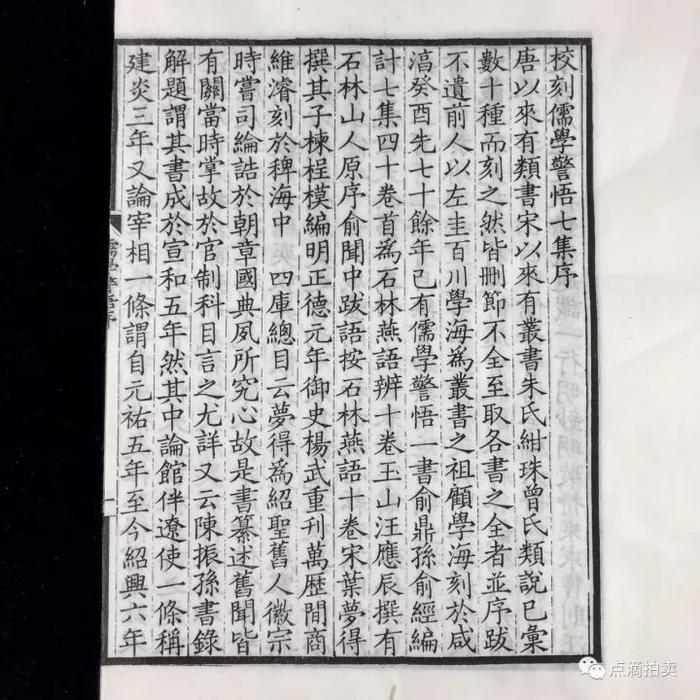 校刻儒學警悟七集序
唐以來有類書宋以來有叢書朱氏紺珠曾氏類說已彙
數十種而刻之然皆刪節不全至取各書之全者並序跋
不遺前人以左圭百川學海為叢書之祖顧學海刻於咸
淳癸酉先七十餘年已有儒學警悟一書俞鼎孫俞經編
計七集四十卷首為石林燕語辨十卷玉山汪應辰撰有
石林山人原序俞聞中跋語按石林燕語十卷宋葉夢得
撰其子棟桯模編明正德元年御史楊武重刊萬歷間商
維濬刻於稗海中 四庫總目云夢得為紹聖舊人徽宗
時嘗司綸誥於朝章國典夙所究心故是書纂述舊聞皆
有關當時掌故於官制科目言之尤詳又云陳振孫書錄
解題謂其書成於宣和五年然其中論館伴遼使一條稱
建炎三年又論宰相一條謂自元祐五年至今紹興六年
點滴拍卖